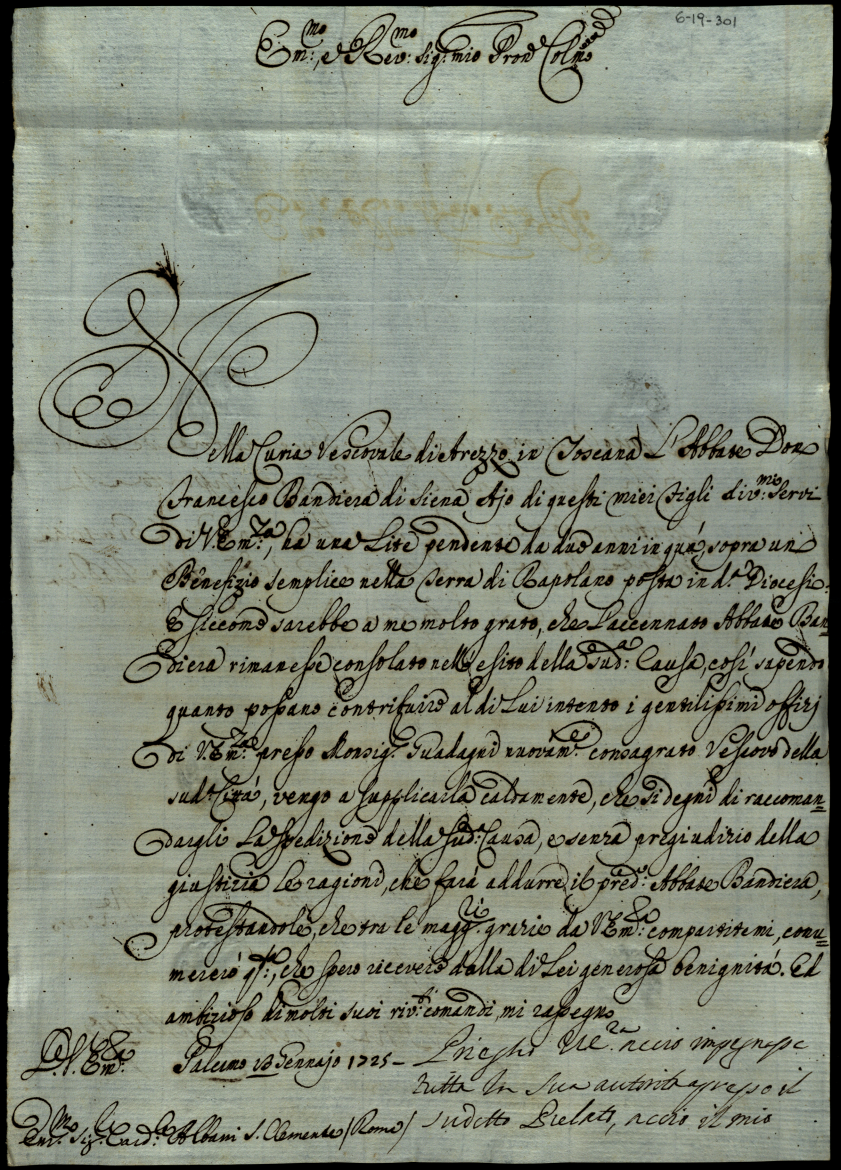 6-19-301
Em:mo, e Rev:mo Sig: mio Pron Colmo
Nella Curia Vescovale di Arezzo in Toscana L'Abbate Don
Francesco Bandiera di Siena Ajo di questi miei Figli div:mi Servi
di V. Em:za, ha una Lite pendente da due anni in quà, sopra un
Benefizio semplice nella Terra di Rapolano posta in d:a Diocesi.
E siccome sarebbe a me molto grato, che L'accennato Abbate Ban=
diera rimanesse consolato nell'esito della sud:a Causa, così sapendo
quanto possano contribuire al di Lui intento i gentilissimi offizj
di V. Em:za presso Monsig:r Guadagni nuovam:e consagrato Vescovo della
sud:a Città, vengo a supplicarla caldamente, che si degni di raccoman=
dargli La spedizione della sud:a Causa, e senza pregiudizio della
giustizia le ragioni, che farà addurre il pred:o Abbate Bandiera,
protestandole, che tra le magg:ri grazie da V. Em:za compartitemi, conu=
mererò q:sta, che spero ricevere dalla di Lei generosa benignità. Ed
ambizioso di molti suoi riv:ti comandi, mi rassegno
D. V. Em:za
Palermo 13 Gennajo 1725 -
Priegho V.E.za acciò impegnasse
tutta la sua autorità apresso il
sudetto Prelato, acciò il mio
Em:mo Sig:r Card:le Albani S. Clemente (Roma)